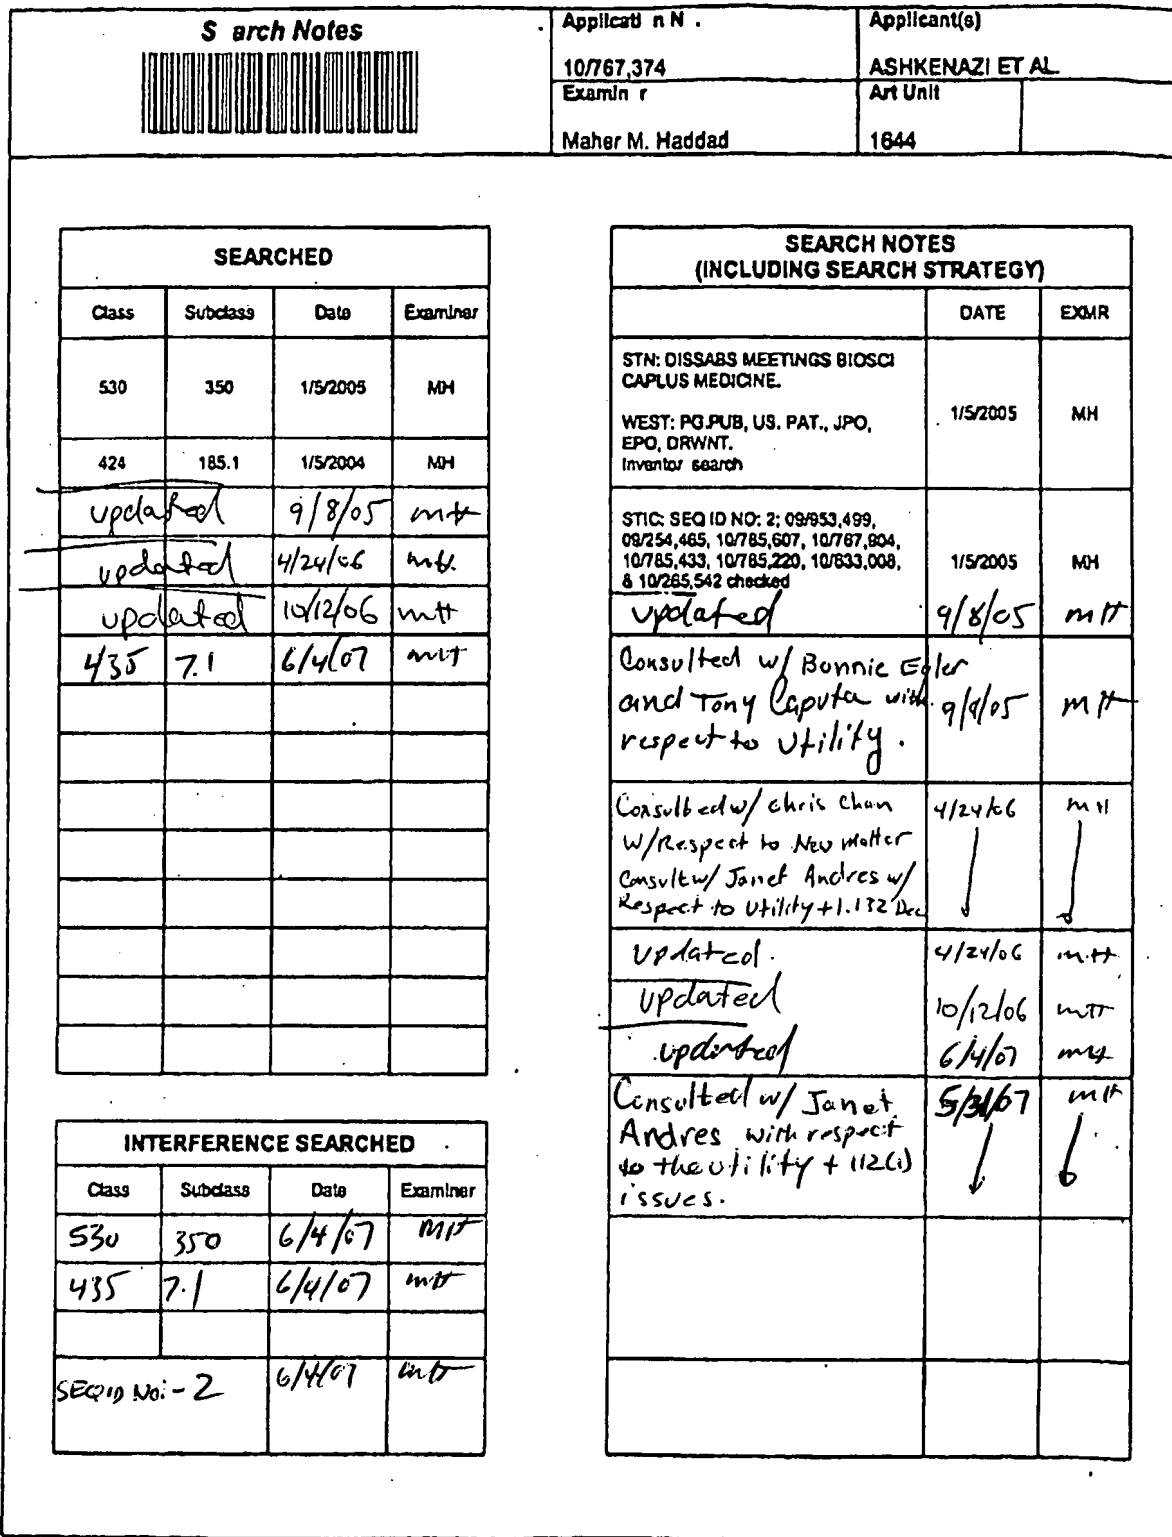 S arch Notes
Applicati n N .
10/767,374
Applicant(s)
ASHKENAZI ET AL.
Examin r
Maher M. Haddad
Art Unit
1644
SEARCHED
Class Subclass Date Examiner
530 350 1/5/2005 MH
424 185.1 1/5/2004 MH
updated 9/8/05 MH
updated 4/24/06 MH.
updated 10/12/06 MH
435 7.1 6/4/07 MH
INTERFERENCE SEARCHED
Class Subclass Date Examiner
530 350 6/4/07 MH
435 7.1 6/4/07 MH
SEQ ID No:-2 6/4/07 MH
SEARCH NOTES
(INCLUDING SEARCH STRATEGY)
DATE EXMR
STN: DISSABS MEETINGS BIOSCI
CAPLUS MEDICINE.
WEST: PG.PUB, US. PAT., JPO,
EPO, DRWNT.
Inventor search
1/5/2005 MH
STIC: SEQ ID NO: 2; 09/953,499,
09/254,465, 10/785,607, 10/767,904,
10/785,433, 10/785,220, 10/633,008,
& 10/265,542 checked
1/5/2005 MH
updated 9/8/05 MH
Consulted w/ Bonnie Eyler
and Tony Caputa with
respect to Utility.
9/8/05 MH
Consulted w/ Chris Chan
w/Respect to New Matter
Consult w/ Janet Andres w/
Respect to Utility + 1.132 Dec
4/24/06 MH
updated. 4/24/06 MH
updated 10/12/06 MH
updated 6/4/07 MH
Consulted w/ Janet
Andres with respect
to the utility + 112(1)
issues.
5/31/07 MH